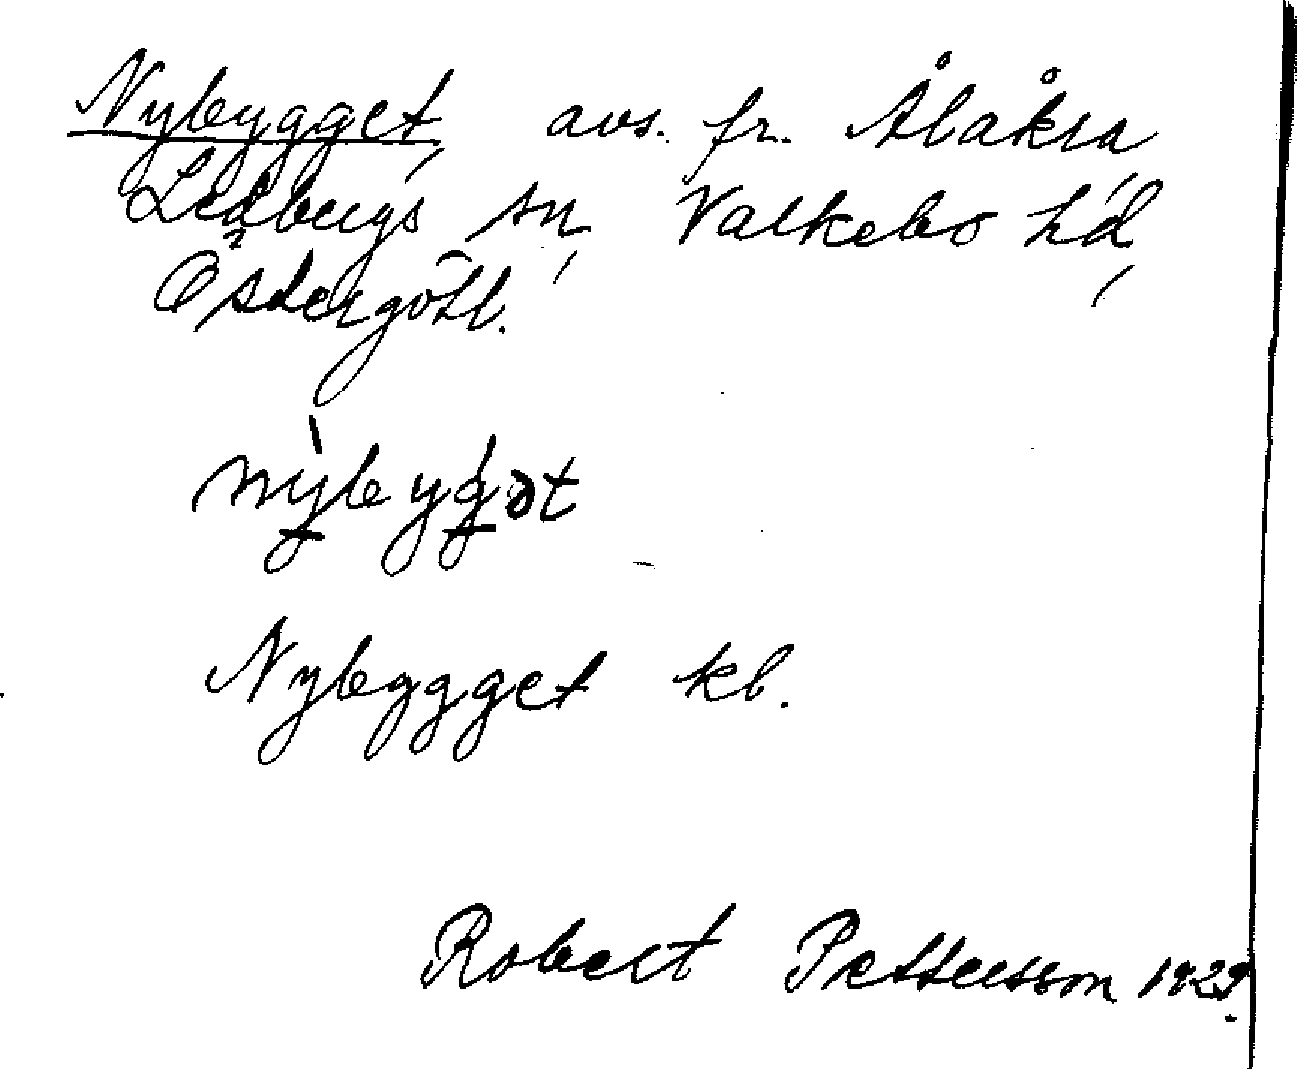 Nybygget, avs. fr. Ålåkra,
Ledbergs sn, Valkebo hd,
Östergötl.
nỳbygət
Nybygget kb.
Robert Pettersson 1929.